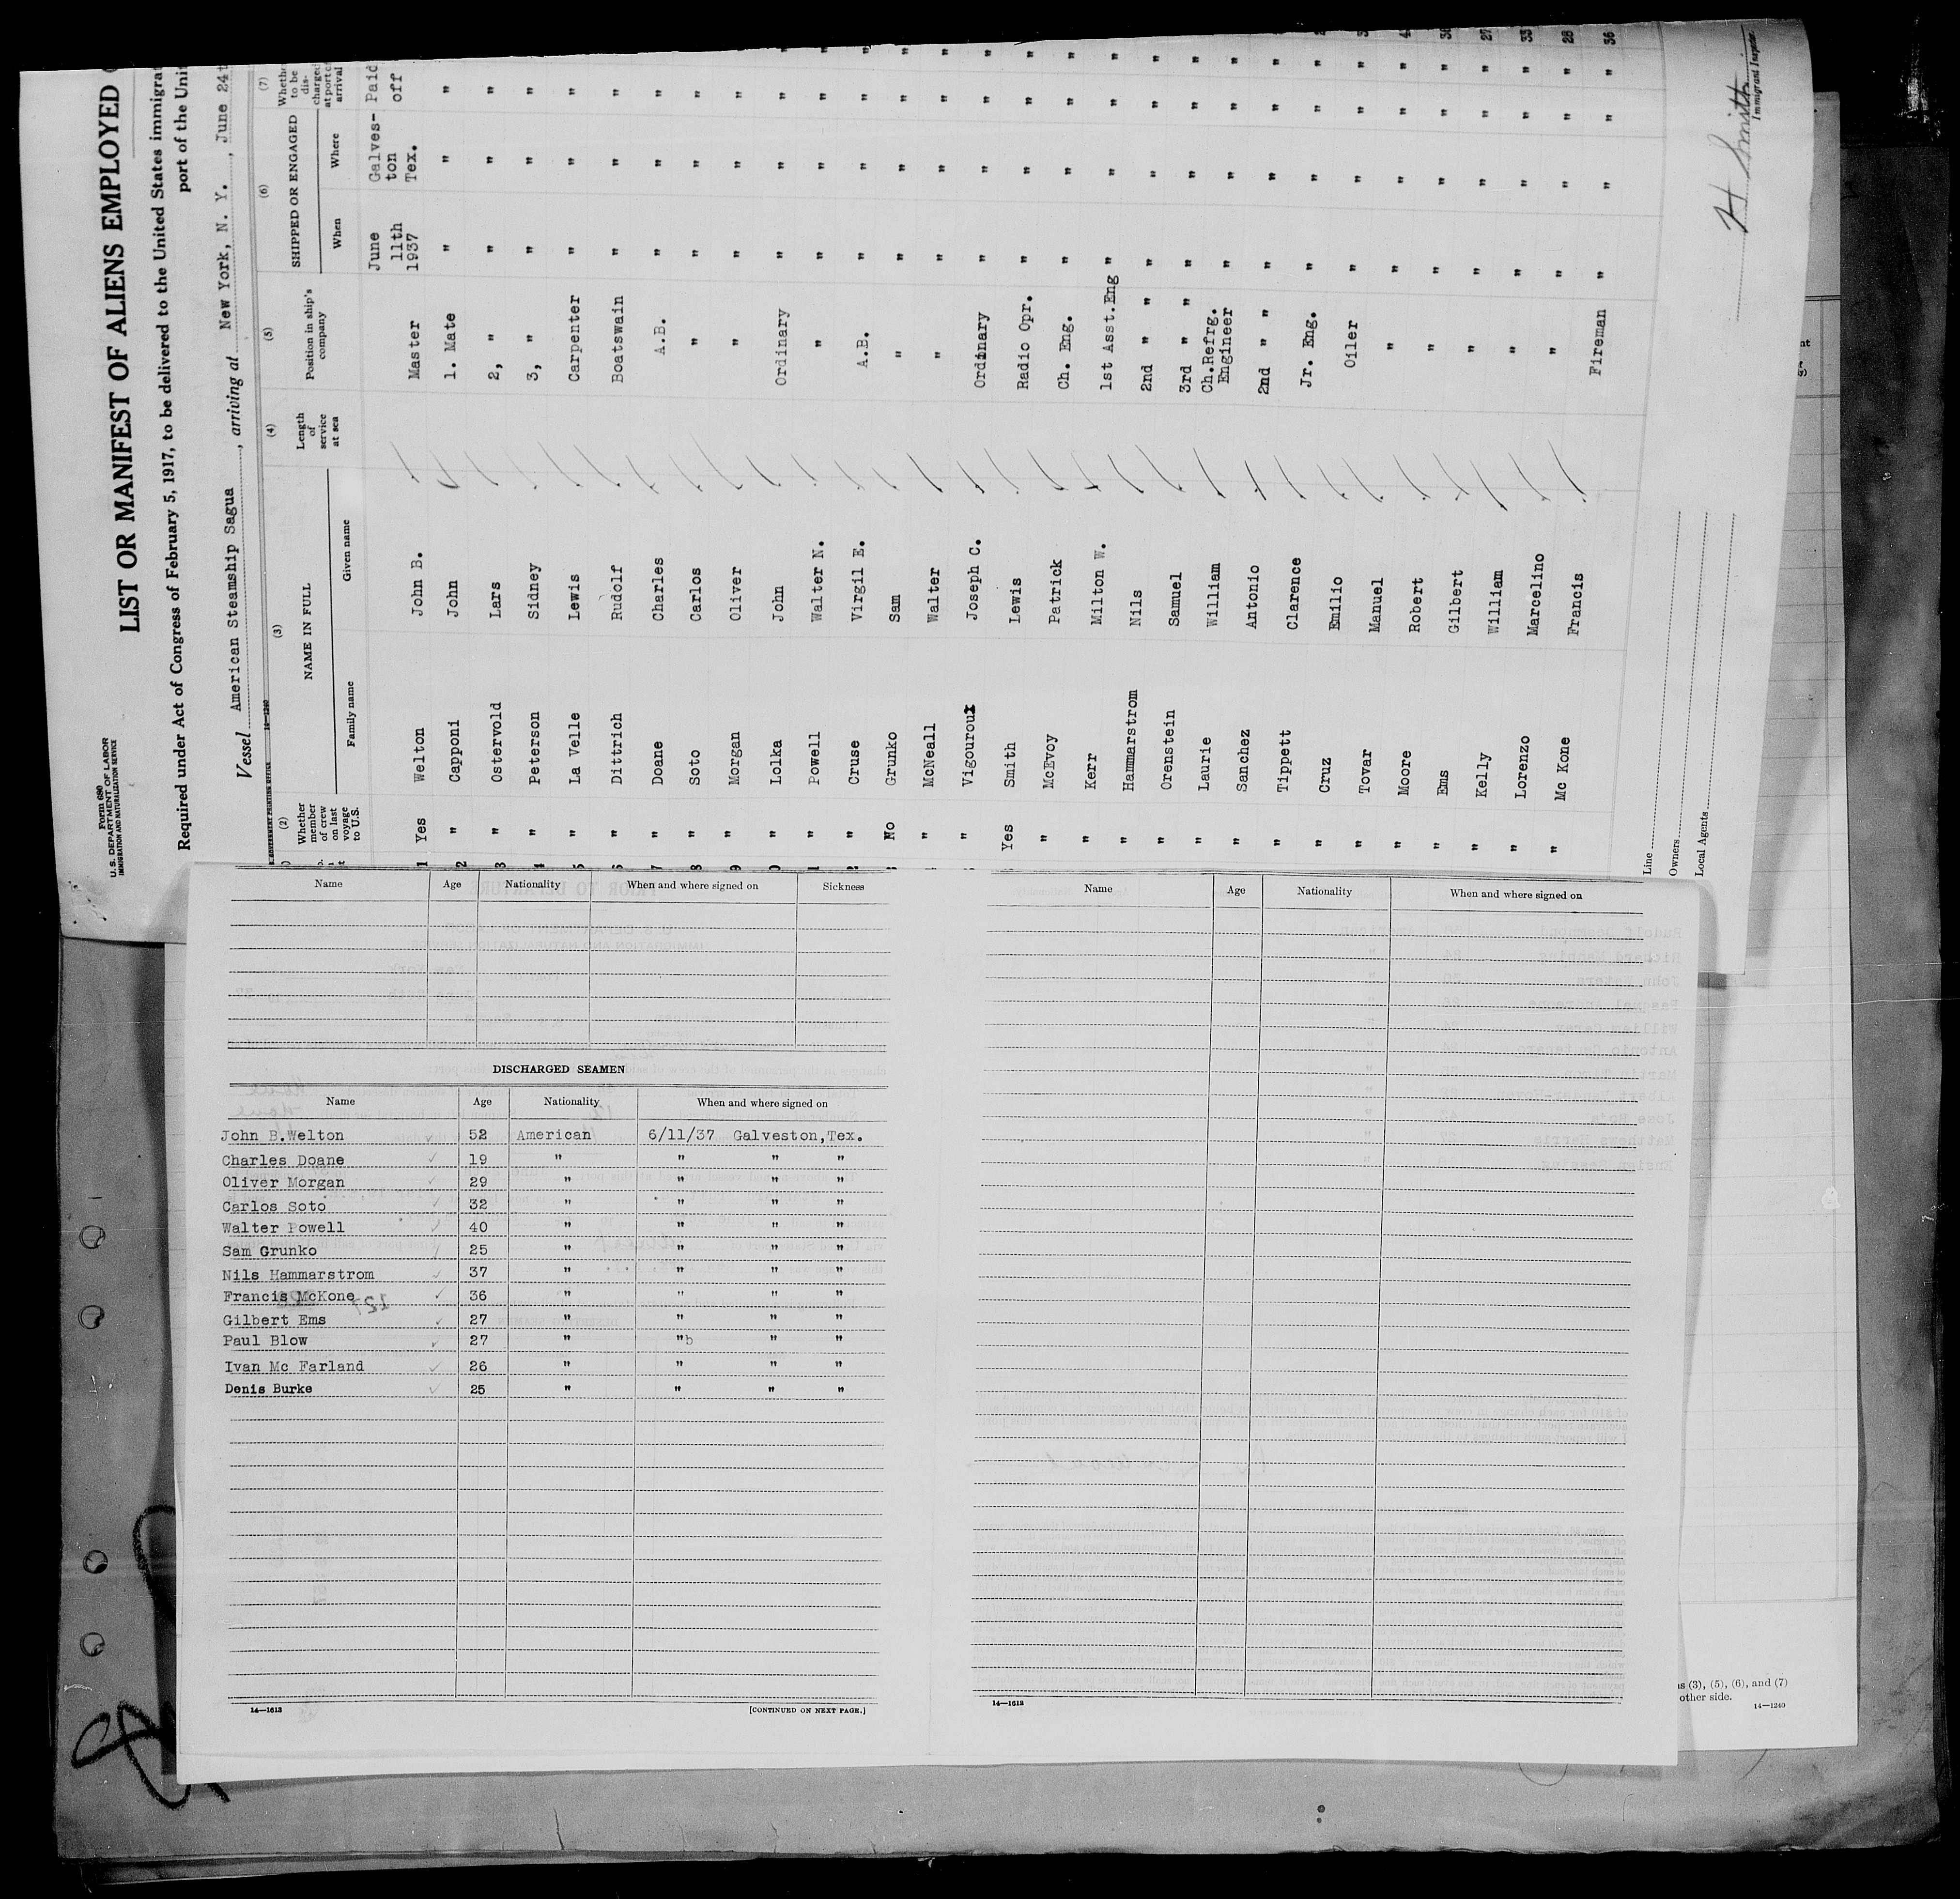 Form 680
U.S. DEPARTMENT OF LABOR
IMMIGRATION AND NATURALIZATION SERVICE
LIST OR MANIFEST OF ALIENS EMPLOYED
Required under Act of Congress of February 5, 1917, to be delivered to the United States immigrat
port of the Unit
Vessel American Steamship Sagua, arriving at New York, N. Y., June 24t
14—1240
(2) (3) (4) (5) (6) (7)
Whether member of crew on last voyage to U.S. NAME IN FULL Length of service at sea Position in ship's company SHIPPED OR ENGAGED Whether to be discharged at port of arrival
Family name Given name When Where
1 Yes Welton John B. Master June 11th 1937 Galveston Tex. Paid off
2 " Capponi John 1. Mate " " "
3 " Ostervold Lars 2, " " " "
4 " Peterson Sidney 3, " " " "
5 " La Velle Lewis Carpenter " " "
6 " Dittrich Rudolf Boatswain " " "
7 " Doane Charles A.B. " " "
8 " Soto Carlos " " " "
9 " Morgan Oliver " " " "
0 " Lolka John Ordinary " " "
1 " Powell Walter N. " " " "
2 " Cruse Virgil E. A.B. " " "
No Grunko Sam " " " "
" McNeall Walter " " " "
" Vigouroux Joseph C. Ordinary " " "
Yes Smith Lewis Radio Opr. " " "
" McEvoy Patrick Ch. Eng. " " "
" Kerr Milton W. 1st Asst.Eng " " "
" Hammarstrom Nils 2nd " " " " "
" Orenstein Samuel 3rd " " " " "
" Laurie William Ch.Refrg. Engineer " " "
" Sanchez Antonio 2nd " " " " "
" Tippett Clarence Jr. Eng. " " "
" Cruz Emilio Oiler " " "
" Tovar Manuel " " " "
" Moore Robert " " " "
" Ems Gilbert " " " "
" Kelly William " " " "
" Lorenzo Marcelino " " " "
" Mc Kone Francis Fireman " " " " 36
Line
Owners
Local Agents
H Smith
Immigrant Inspector.
Name Age Nationality When and where signed on Sickness
DISCHARGED SEAMEN
Name Age Nationality When and where signed on
John B.Welton 52 American 6/11/37 Galveston,Tex.
Charles Doane 19 " " " "
Oliver Morgan 29 " " " "
Carlos Soto 32 " " " "
Walter Powell 40 " " " "
Sam Grunko 25 " " " "
Nils Hammarstrom 37 " " " "
Francis McKone 36 " " " "
Gilbert Ems 27 " " " "
Paul Blow 27 " "b " "
Ivan Mc Farland 26 " " " "
Denis Burke 25 " " " "
14—1613 [CONTINUED ON NEXT PAGE.]
Name Age Nationality When and where signed on
14—1613
s (3), (5), (6), and (7)
other side.
14—1240